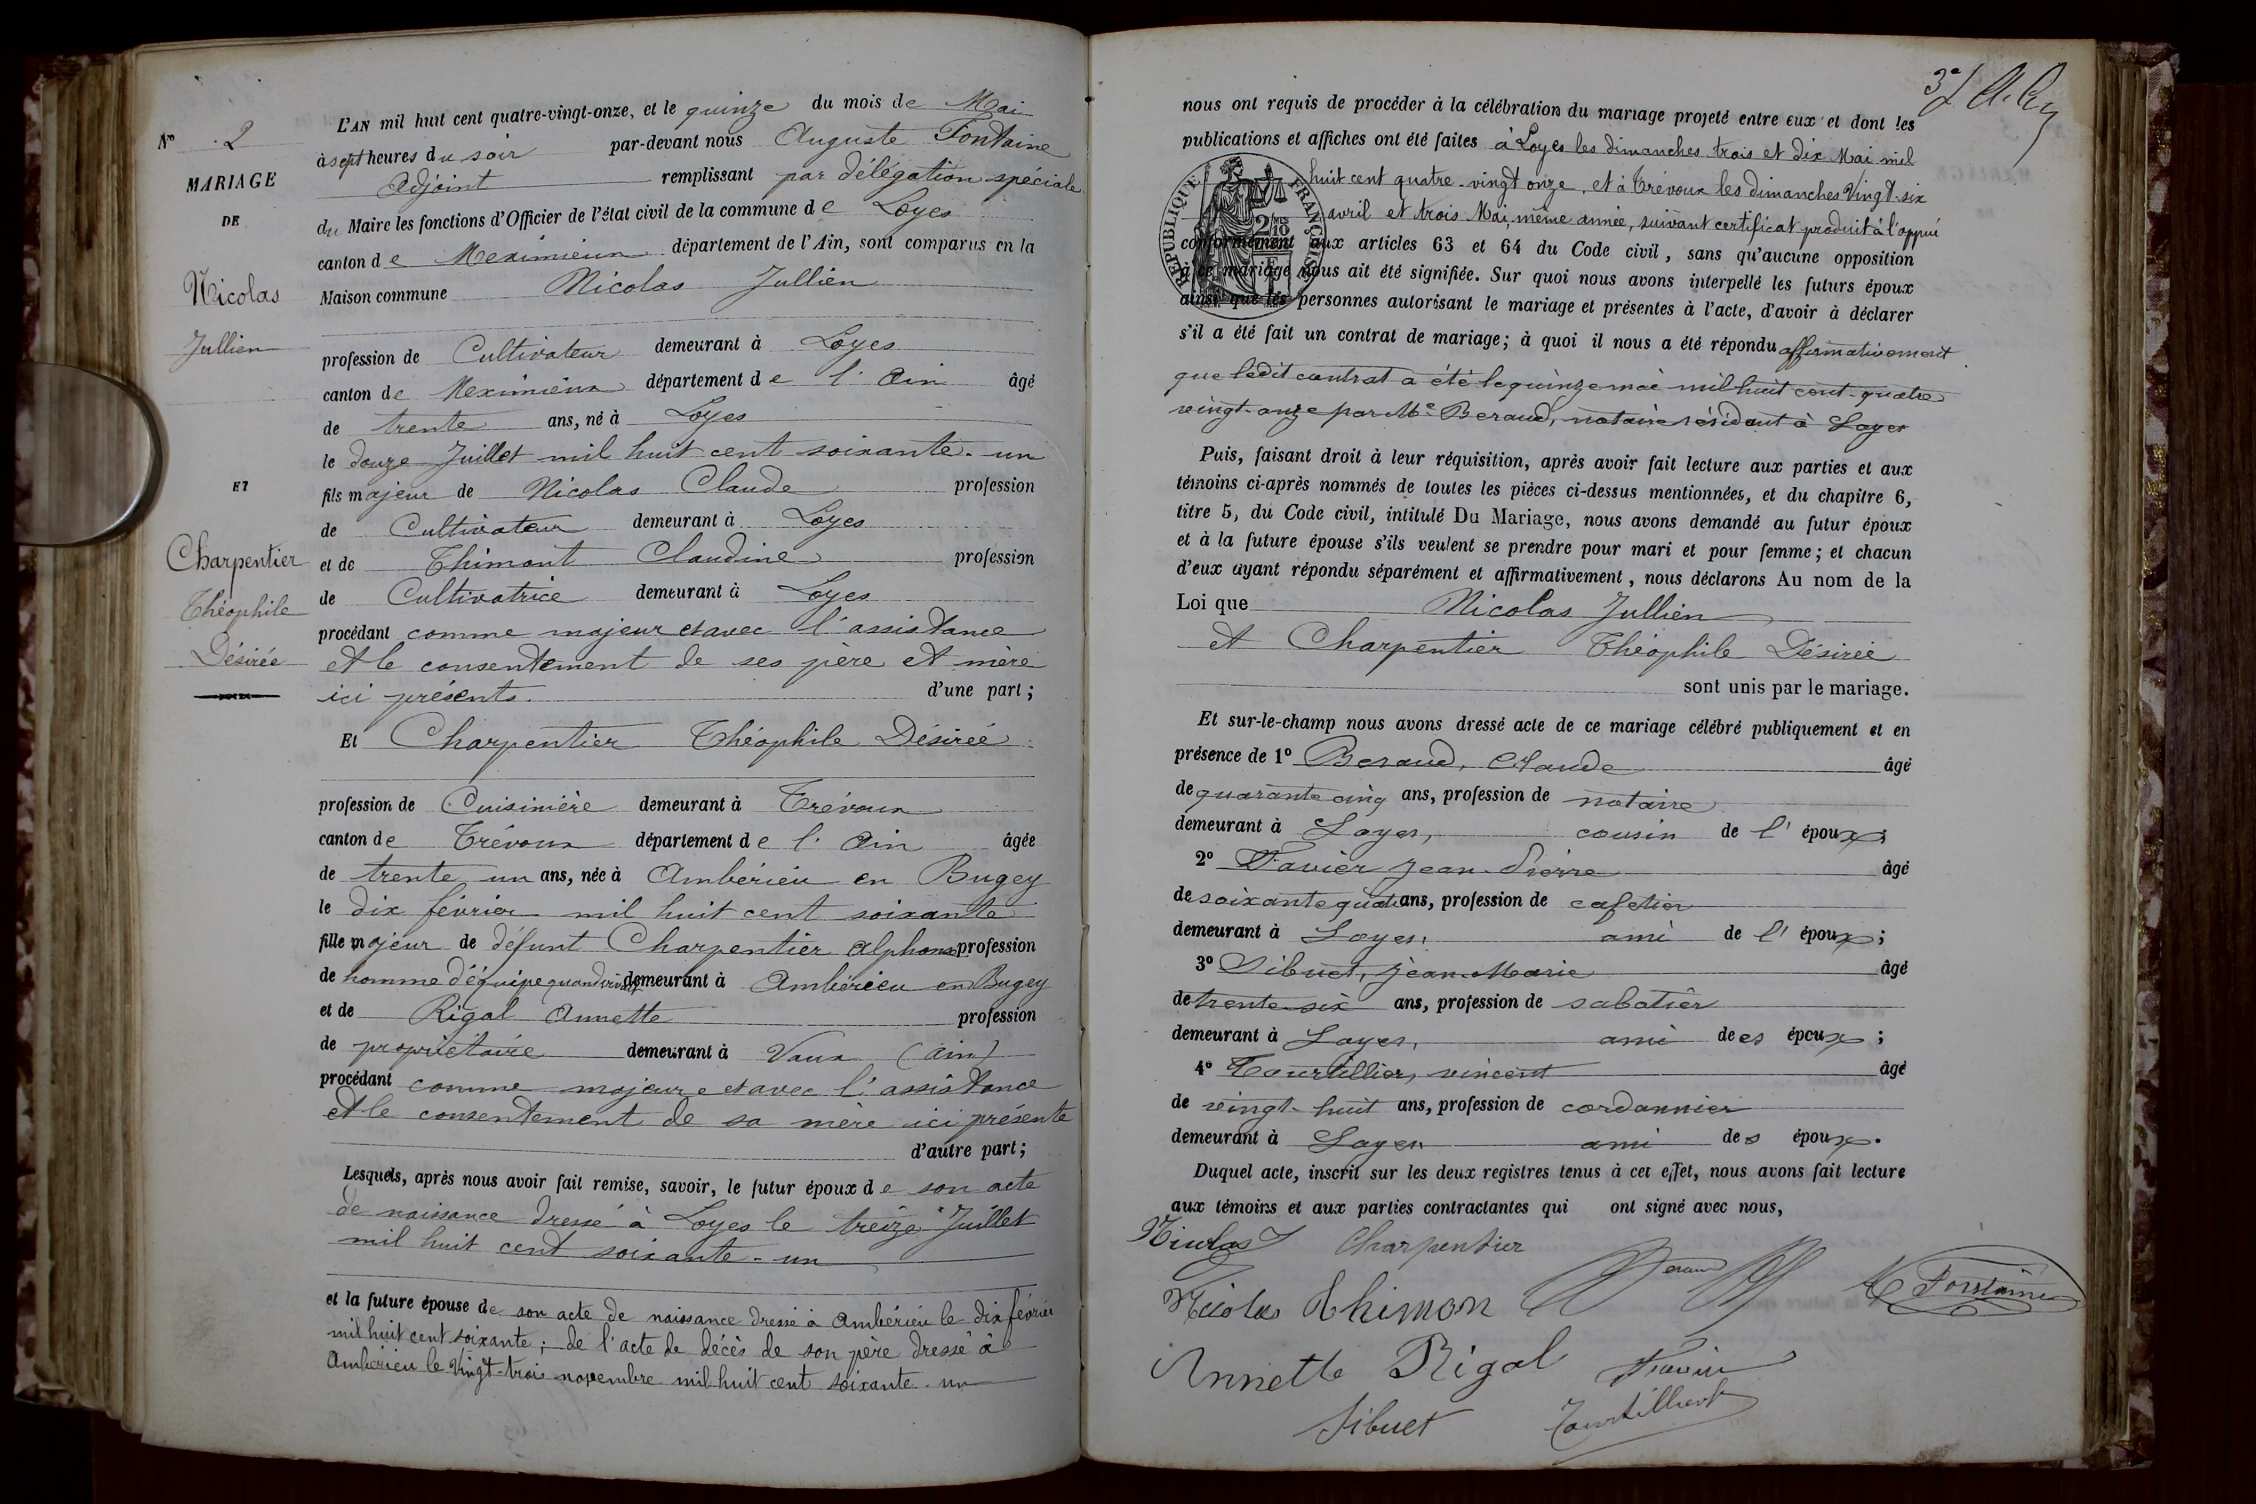 N° 2
MARIAGE
DE
Nicolas
Jullien
ET
Charpentier
Théophile
Désirée
L'AN mil huit cent quatre-vingt-onze, et le quinze du mois de Mai
à sept heures du soir par-devant nous Auguste Fontaine
Adjoint remplissant par délégation spéciale
du Maire les fonctions d'Officier de l'état civil de la commune de Loyes
canton de Meximieux département de l'Ain, sont comparus en la
Maison commune Nicolas Jullien
profession de Cultivateur demeurant à Loyes
canton de Meximieux département de l'Ain âgé
de trente ans, né à Loyes
le douze Juillet mil huit cent soixante-un
fils majeur de Nicolas Claude profession
de Cultivateur demeurant à Loyes
et de Thimont Claudine profession
de Cultivatrice demeurant à Loyes
procédant comme majeur et avec l'assistance
et le consentement de ses père et mère
ici présents. d'une part;
Et Charpentier Théophile Désirée
profession de Cuisinière demeurant à Trévoux
canton de Trévoux département de l'Ain âgée
de trente un ans, née à Ambérieu en Bugey
le dix février mil huit cent soixante
fille majeur de défunt Charpentier Alphonse profession
de homme d'équipe quand vivait demeurant à Ambérieu en Bugey
et de Rigal Annette profession
de propriétaire demeurant à Vaux (Ain)
procédant comme majeure et avec l'assistance
et le consentement de sa mère ici présente
d'autre part;
Lesquels, après nous avoir fait remise, savoir, le futur époux de son acte
de naissance dressé à Loyes le treize Juillet
mil huit cent soixante-un
et la future épouse de son acte de naissance dressé à Ambérieu le dix février
mil huit cent soixante; de l'acte de décès de son père dressé à
Ambérieu le Vingt-trois novembre mil huit cent soixante-un
nous ont requis de procéder à la célébration du mariage projeté entre eux et dont les
publications et affiches ont été faites à Loyes les dimanches trois et dix Mai mil
huit cent quatre-vingt onze, et à Trévoux les dimanches Vingt-six
avril et trois Mai, même année, suivant certificat produit à l'appui
RÉPUBLIQUE FRANÇAISE
conformément aux articles 63 et 64 du Code civil, sans qu'aucune opposition
à ce mariage nous ait été signifiée. Sur quoi nous avons interpellé les futurs époux
ainsi que les personnes autorisant le mariage et présentes à l'acte, d'avoir à déclarer
s'il a été fait un contrat de mariage; à quoi il nous a été répondu affirmativement
que ledit contrat a été le quinze mai mil huit cent quatre
vingt-onze par Me Beraud, notaire résidant à Loyes
Puis, faisant droit à leur réquisition, après avoir fait lecture aux parties et aux
témoins ci-après nommés de toutes les pièces ci-dessus mentionnées, et du chapitre 6,
titre 5, du Code civil, intitulé Du Mariage, nous avons demandé au futur époux
et à la future épouse s'ils veulent se prendre pour mari et pour femme; et chacun
d'eux ayant répondu séparément et affirmativement, nous déclarons Au nom de la
Loi que Nicolas Jullien
et Charpentier Théophile Désirée
sont unis par le mariage.
Et sur-le-champ nous avons dressé acte de ce mariage célébré publiquement et en
présence de 1° Beraud, Claude âgé
de quarante cinq ans, profession de notaire
demeurant à Loyes, cousin de l'époux;
2° Favier Jean-Pierre âgé
de soixante quatre ans, profession de cafetier
demeurant à Loyes, ami de l'époux;
3° Sibuet, Jean-Marie âgé
de trente-six ans, profession de sabotier
demeurant à Loyes, ami des époux;
4° Tourtillier, vincent âgé
de vingt-huit ans, profession de cordonnier
demeurant à Loyes ami des époux.
Duquel acte, inscrit sur les deux registres tenus à cet effet, nous avons fait lecture
aux témoins et aux parties contractantes qui ont signé avec nous,
Nicolas J Charpentier
Beraud
Fontaine
Nicolas Thimon
Annette Rigal Favier
Sibuet Tourtillier